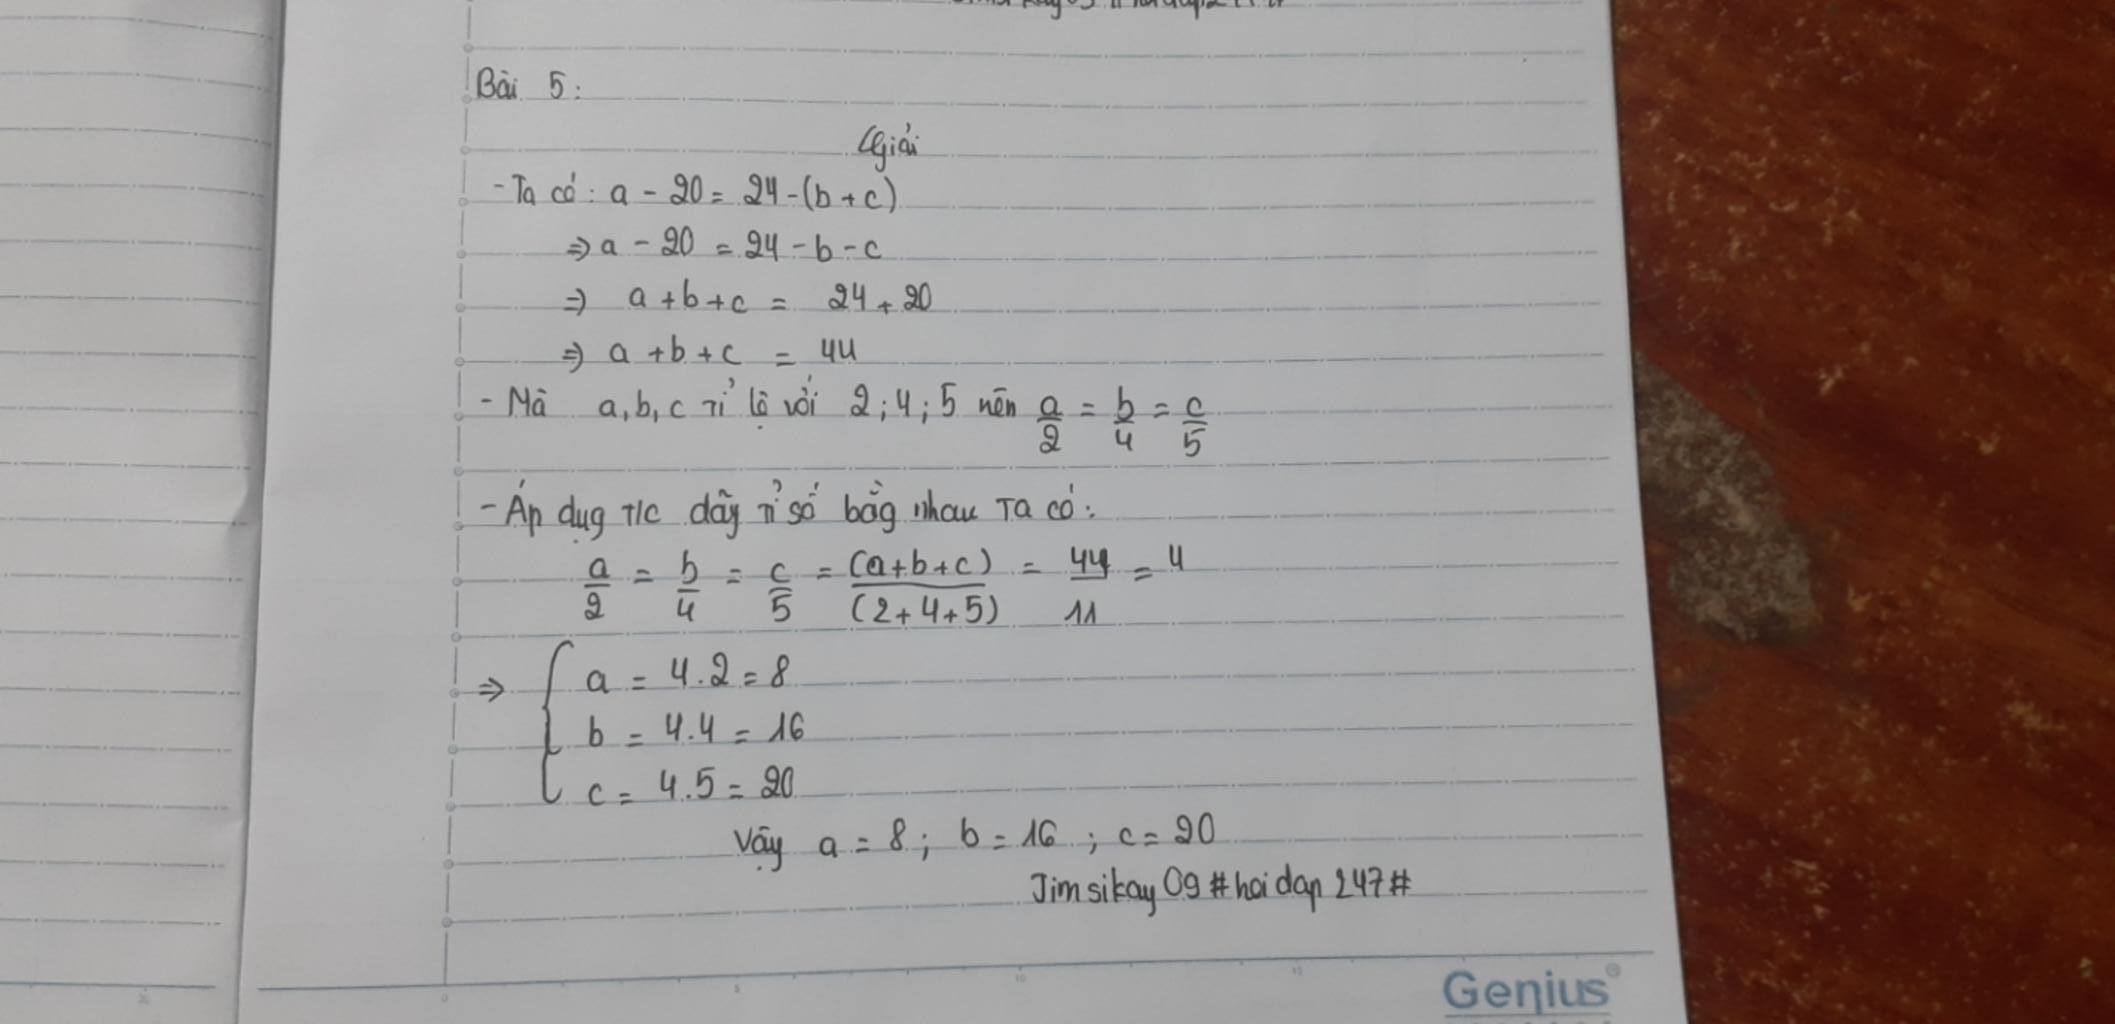 Bài 5:
Giải
- Ta có: a - 20 = 24 - (b + c)
⇒ a - 20 = 24 - b - c
⇒ a + b + c = 24 + 20
⇒ a + b + c = 44
- Mà a, b, c tỉ lệ với 2; 4; 5 nên a/2 = b/4 = c/5
- Áp dụg T/C dãy tỉ số bằg nhau Ta có:
a/2 = b/4 = c/5 = (a+b+c)/(2+4+5) = 44/11 = 4
⇒ { a = 4.2 = 8
b = 4.4 = 16
c = 4.5 = 20
Vậy a = 8; b = 16; c = 20
Jimsikay09 #hoidap247#
0 5 10 15
20
Genius®